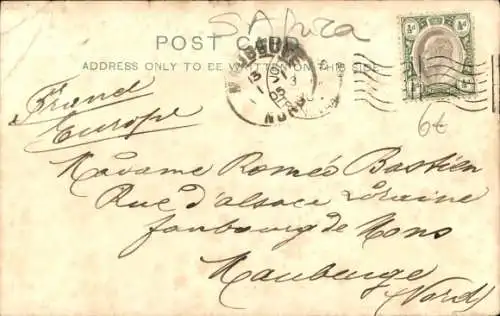 S Africa
POST CARD
ADDRESS ONLY TO BE WRITTEN ON THIS SIDE
½d ½d
France
Europe
6€
Madame Romeo Bastien
Rue d'alsace Loraine
faubourg de Mons
Maubeuge
(Nord)